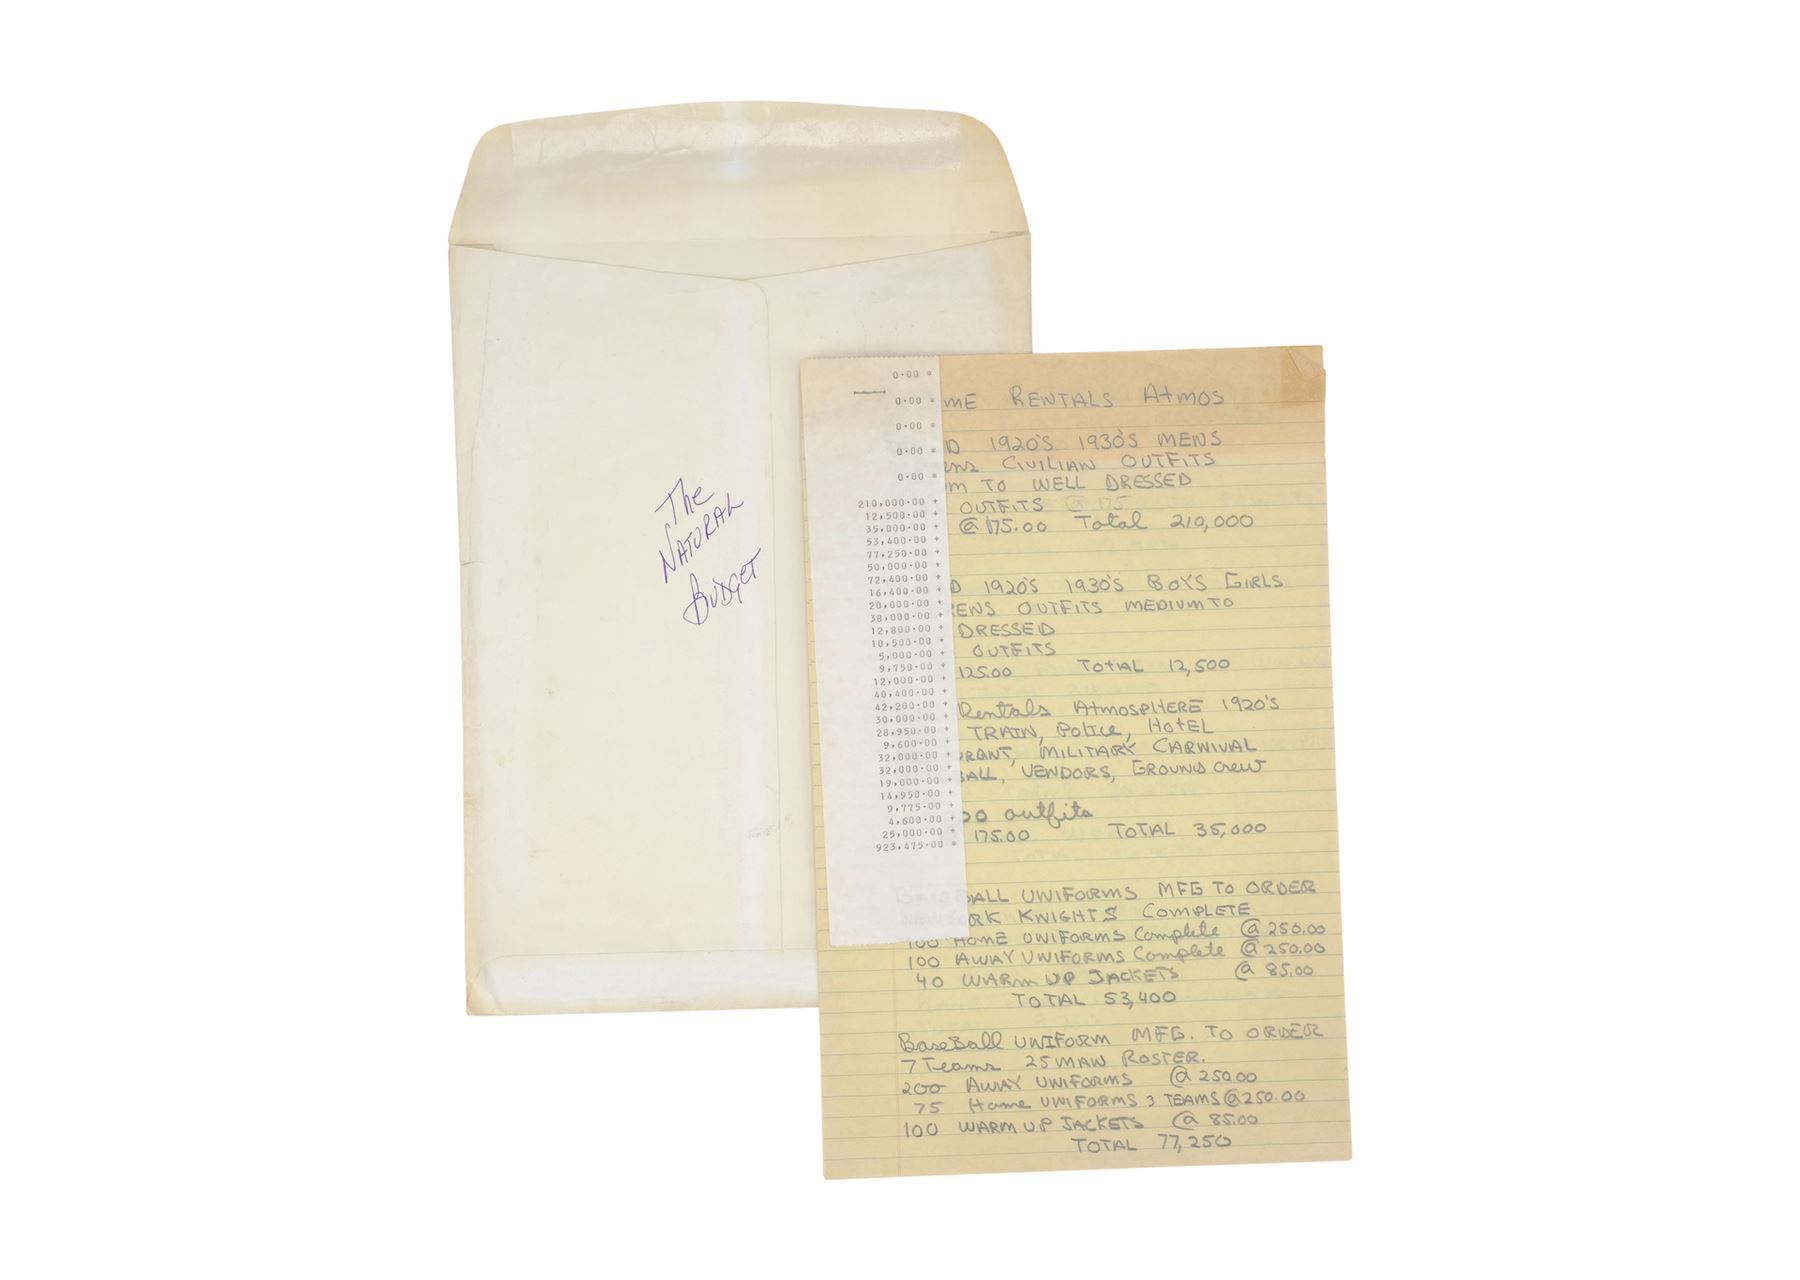 The
NATURAL
BUDGET
0.00 *
0.00 *
0.00 *
0.00 *
0.00 *
210,000.00 +
12,500.00 +
35,000.00 +
53,400.00 +
77,250.00 +
50,000.00 +
72,400.00 +
16,400.00 +
20,000.00 +
38,000.00 +
12,800.00 +
10,500.00 +
5,000.00 +
9,750.00 +
12,000.00 +
40,400.00 +
42,200.00 +
30,000.00 +
28,950.00 +
9,600.00 +
32,000.00 +
32,000.00 +
19,000.00 +
14,950.00 +
9,775.00 +
4,600.00 +
25,000.00 +
923,475.00 *
ME RENTALS ATMOS
D 1920'S 1930'S MENS
ens CIVILIAN OUTFITS
M TO WELL DRESSED
OUTFITS @ 175
@ 175.00 Total 210,000
D 1920'S 1930'S BOYS GIRLS
RENS OUTFITS MEDIUM TO
DRESSED
OUTFITS
125.00 TOTAL 12,500
Rentals ATMOSPHERE 1920'S
TRAIN, Police, HOTEL
URANT, MILITARY CARNIVAL
BALL, VENDORS, GROUND crew
00 outfits
175.00 TOTAL 35,000
BASEBALL UNIFORMS MFG TO ORDER
RK KNIGHTS COMPLETE
100 HOME UNIFORMS Complete @ 250.00
100 AWAY UNIFORMS Complete @ 250.00
40 WARM UP JACKETS @ 85.00
TOTAL 53,400
BaseBall UNIFORM MFG. TO ORDER
7 Teams 25 MAN ROSTER.
200 AWAY UNIFORMS @ 250.00
75 Home UNIFORMS 3 TEAMS @ 250.00
100 WARM UP JACKETS @ 85.00
TOTAL 77,250